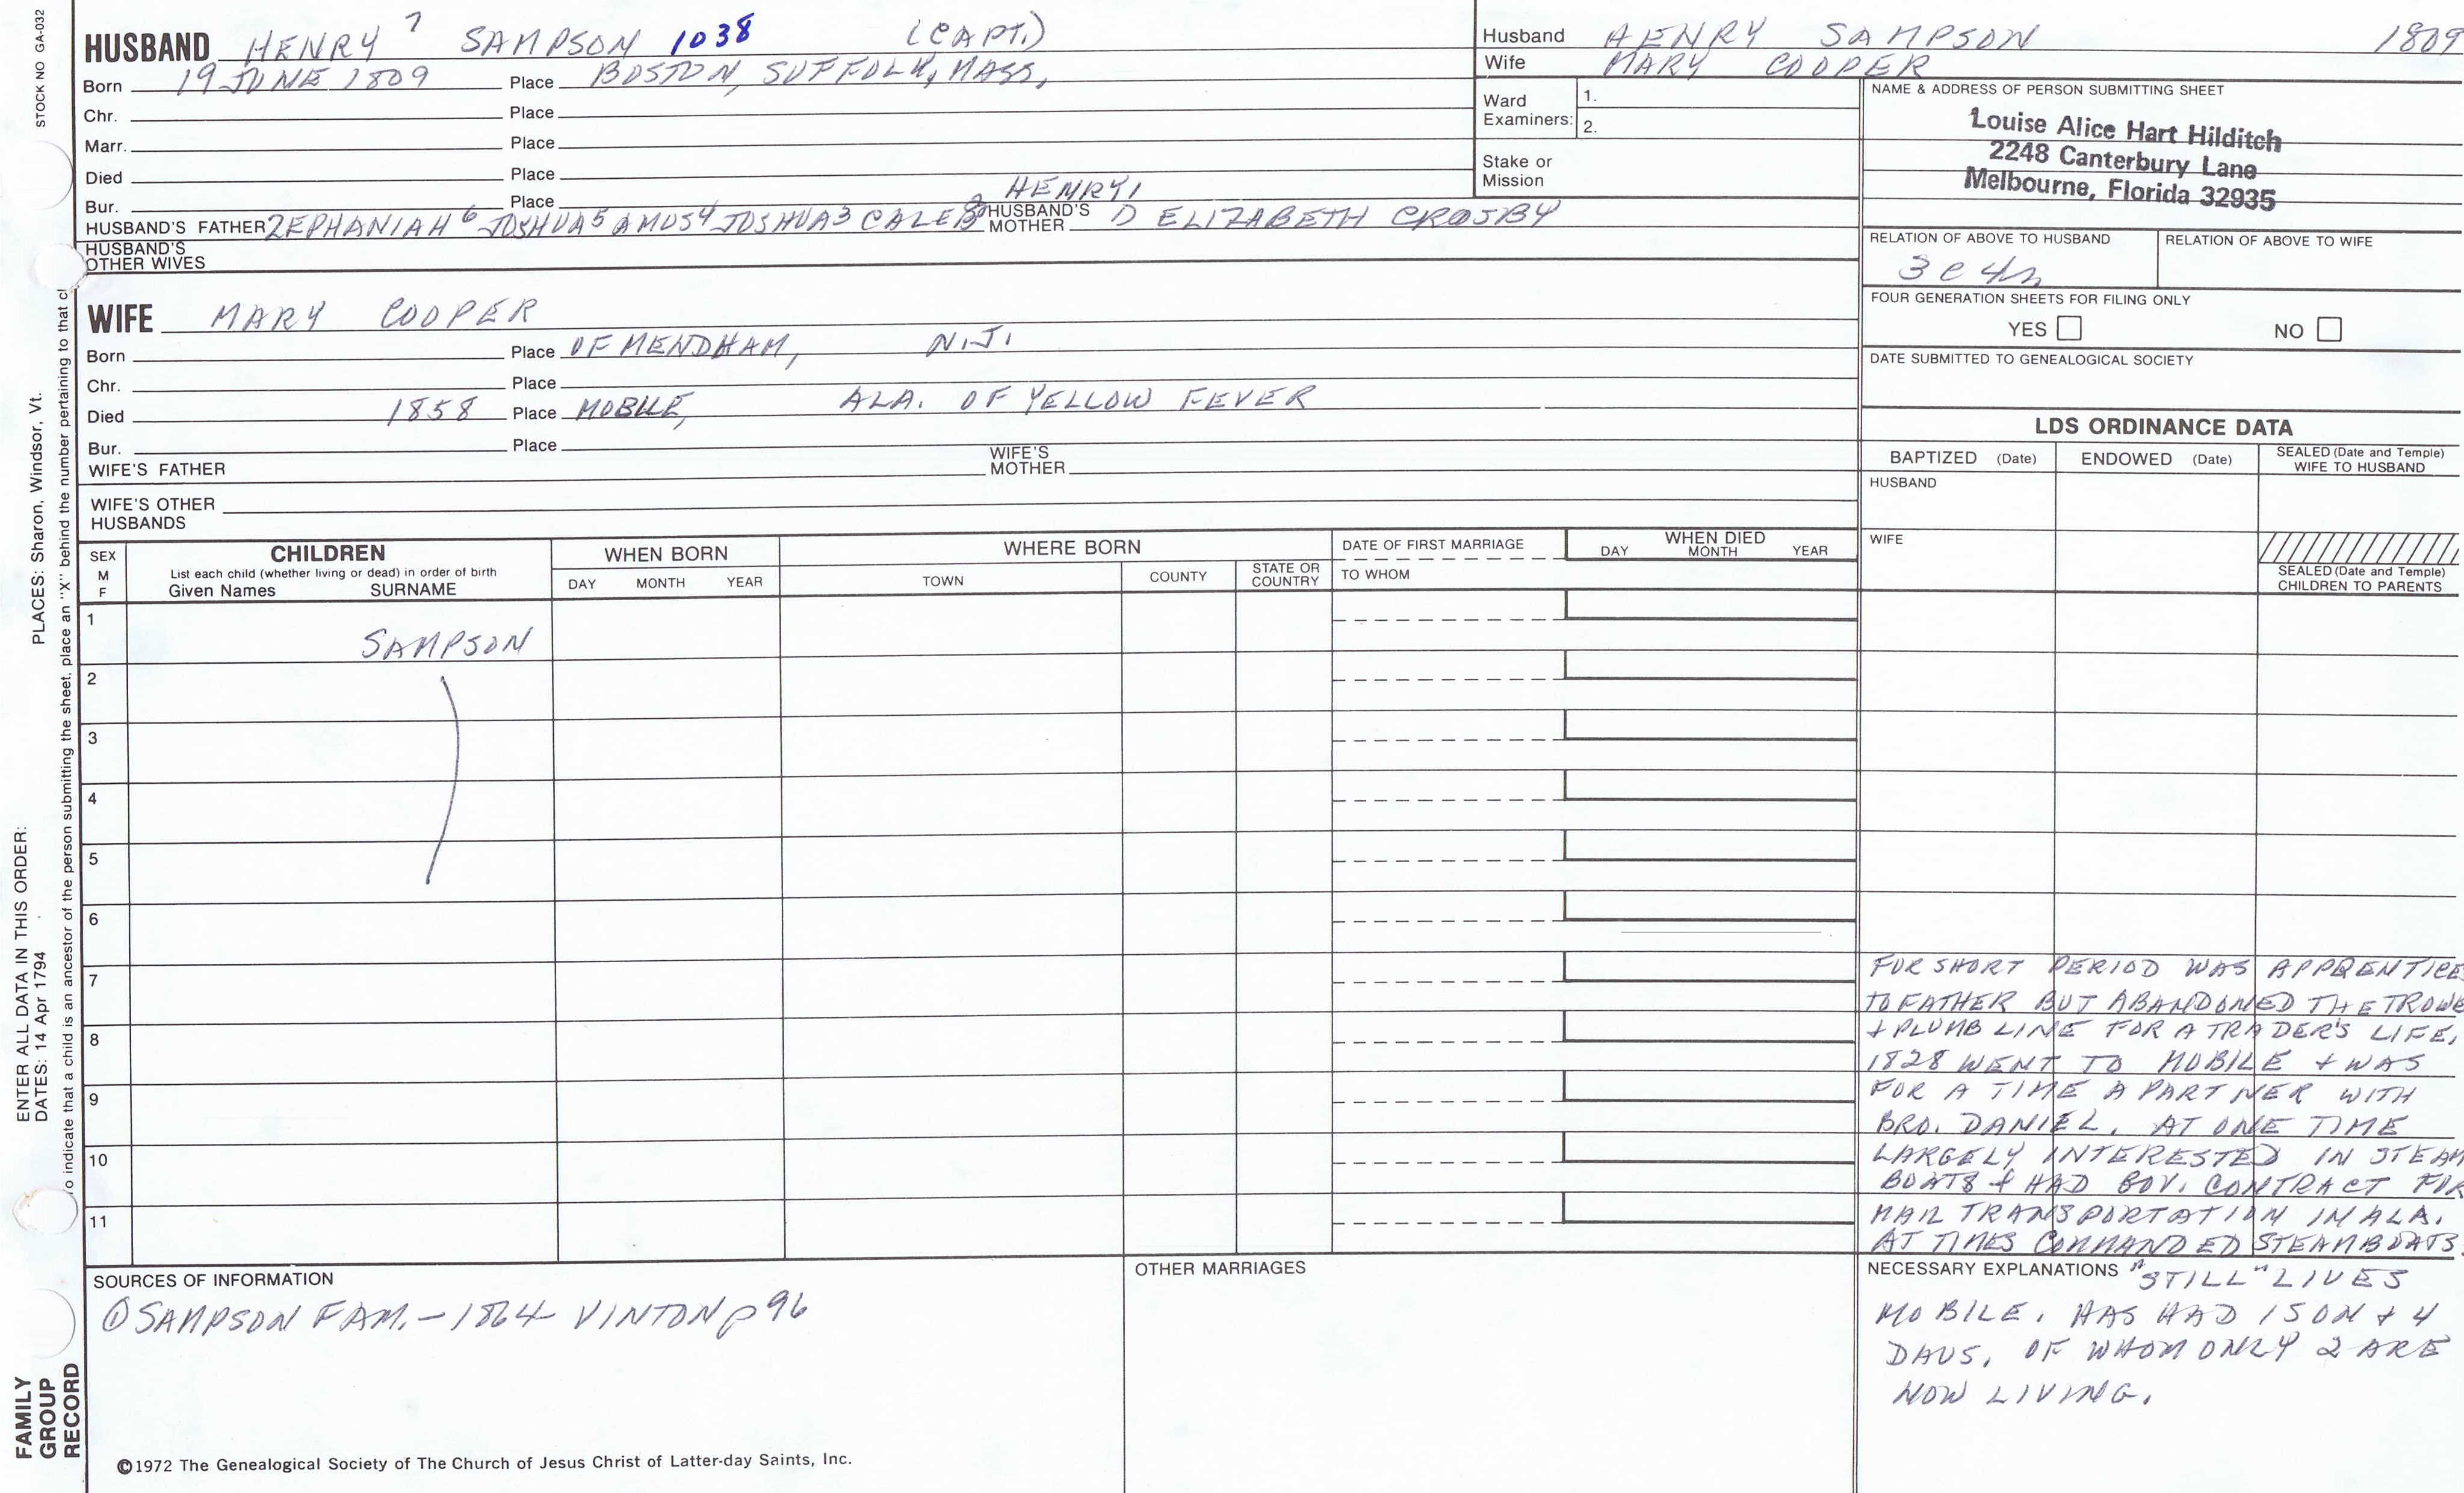 STOCK NO GA-032
HUSBAND HENRY 7 SAMPSON 1038 (CAPT.)
Born 19 JUNE 1809 Place BOSTON, SUFFOLK, MASS,
Chr. Place
Marr. Place
Died Place
Bur. Place
HENRY1
HUSBAND'S FATHER ZEPHANIAH 6 JOSHUA5 AMOS4 JOSHUA3 CALEB2 HUSBAND'S MOTHER D ELIZABETH CROSBY
HUSBAND'S OTHER WIVES
WIFE MARY COOPER
Born Place OF MENDHAM, N.J.
Chr. Place
Died 1858 Place MOBILE, ALA. OF YELLOW FEVER
Bur. Place
WIFE'S FATHER WIFE'S MOTHER
WIFE'S OTHER HUSBANDS
Husband HENRY SAMPSON 1809
Wife MARY COOPER
Ward Examiners: 1.
2.
Stake or Mission
NAME & ADDRESS OF PERSON SUBMITTING SHEET
Louise Alice Hart Hilditch
2248 Canterbury Lane
Melbourne, Florida 32935
RELATION OF ABOVE TO HUSBAND RELATION OF ABOVE TO WIFE
3 C 4R
FOUR GENERATION SHEETS FOR FILING ONLY
YES NO
DATE SUBMITTED TO GENEALOGICAL SOCIETY
LDS ORDINANCE DATA
BAPTIZED (Date) ENDOWED (Date) SEALED (Date and Temple) WIFE TO HUSBAND
HUSBAND
WIFE
SEALED (Date and Temple)
CHILDREN TO PARENTS
SEX M F
CHILDREN
List each child (whether living or dead) in order of birth
Given Names SURNAME
WHEN BORN
DAY MONTH YEAR
WHERE BORN
TOWN COUNTY STATE OR COUNTRY
DATE OF FIRST MARRIAGE
TO WHOM
WHEN DIED
DAY MONTH YEAR
1 SAMPSON
2
3
4
5
6
7
8
9
10
11
FOR SHORT PERIOD WAS APPRENTICE
TO FATHER BUT ABANDONED THE TROWE
+ PLUMB LINE FOR A TRADER'S LIFE,
1828 WENT TO MOBILE + WAS
FOR A TIME A PARTNER WITH
BRO. DANIEL. AT ONE TIME
LARGELY INTERESTED IN STEAM
BOATS + HAD GOV. CONTRACT FOR
MAIL TRANSPORTATION IN ALA.
AT TIMES COMMANDED STEAMBOATS.
NECESSARY EXPLANATIONS "STILL" LIVES
MOBILE. HAS HAD 1 SON + 4
DAUS, OF WHOM ONLY 2 ARE
NOW LIVING.
SOURCES OF INFORMATION
① SAMPSON FAM. - 1864 VINTON p 96
OTHER MARRIAGES
©1972 The Genealogical Society of The Church of Jesus Christ of Latter-day Saints, Inc.
ENTER ALL DATA IN THIS ORDER:
DATES: 14 Apr 1794 PLACES: Sharon, Windsor, Vt.
To indicate that a child is an ancestor of the person submitting the sheet, place an "X" behind the number pertaining to that
FAMILY
GROUP
RECORD